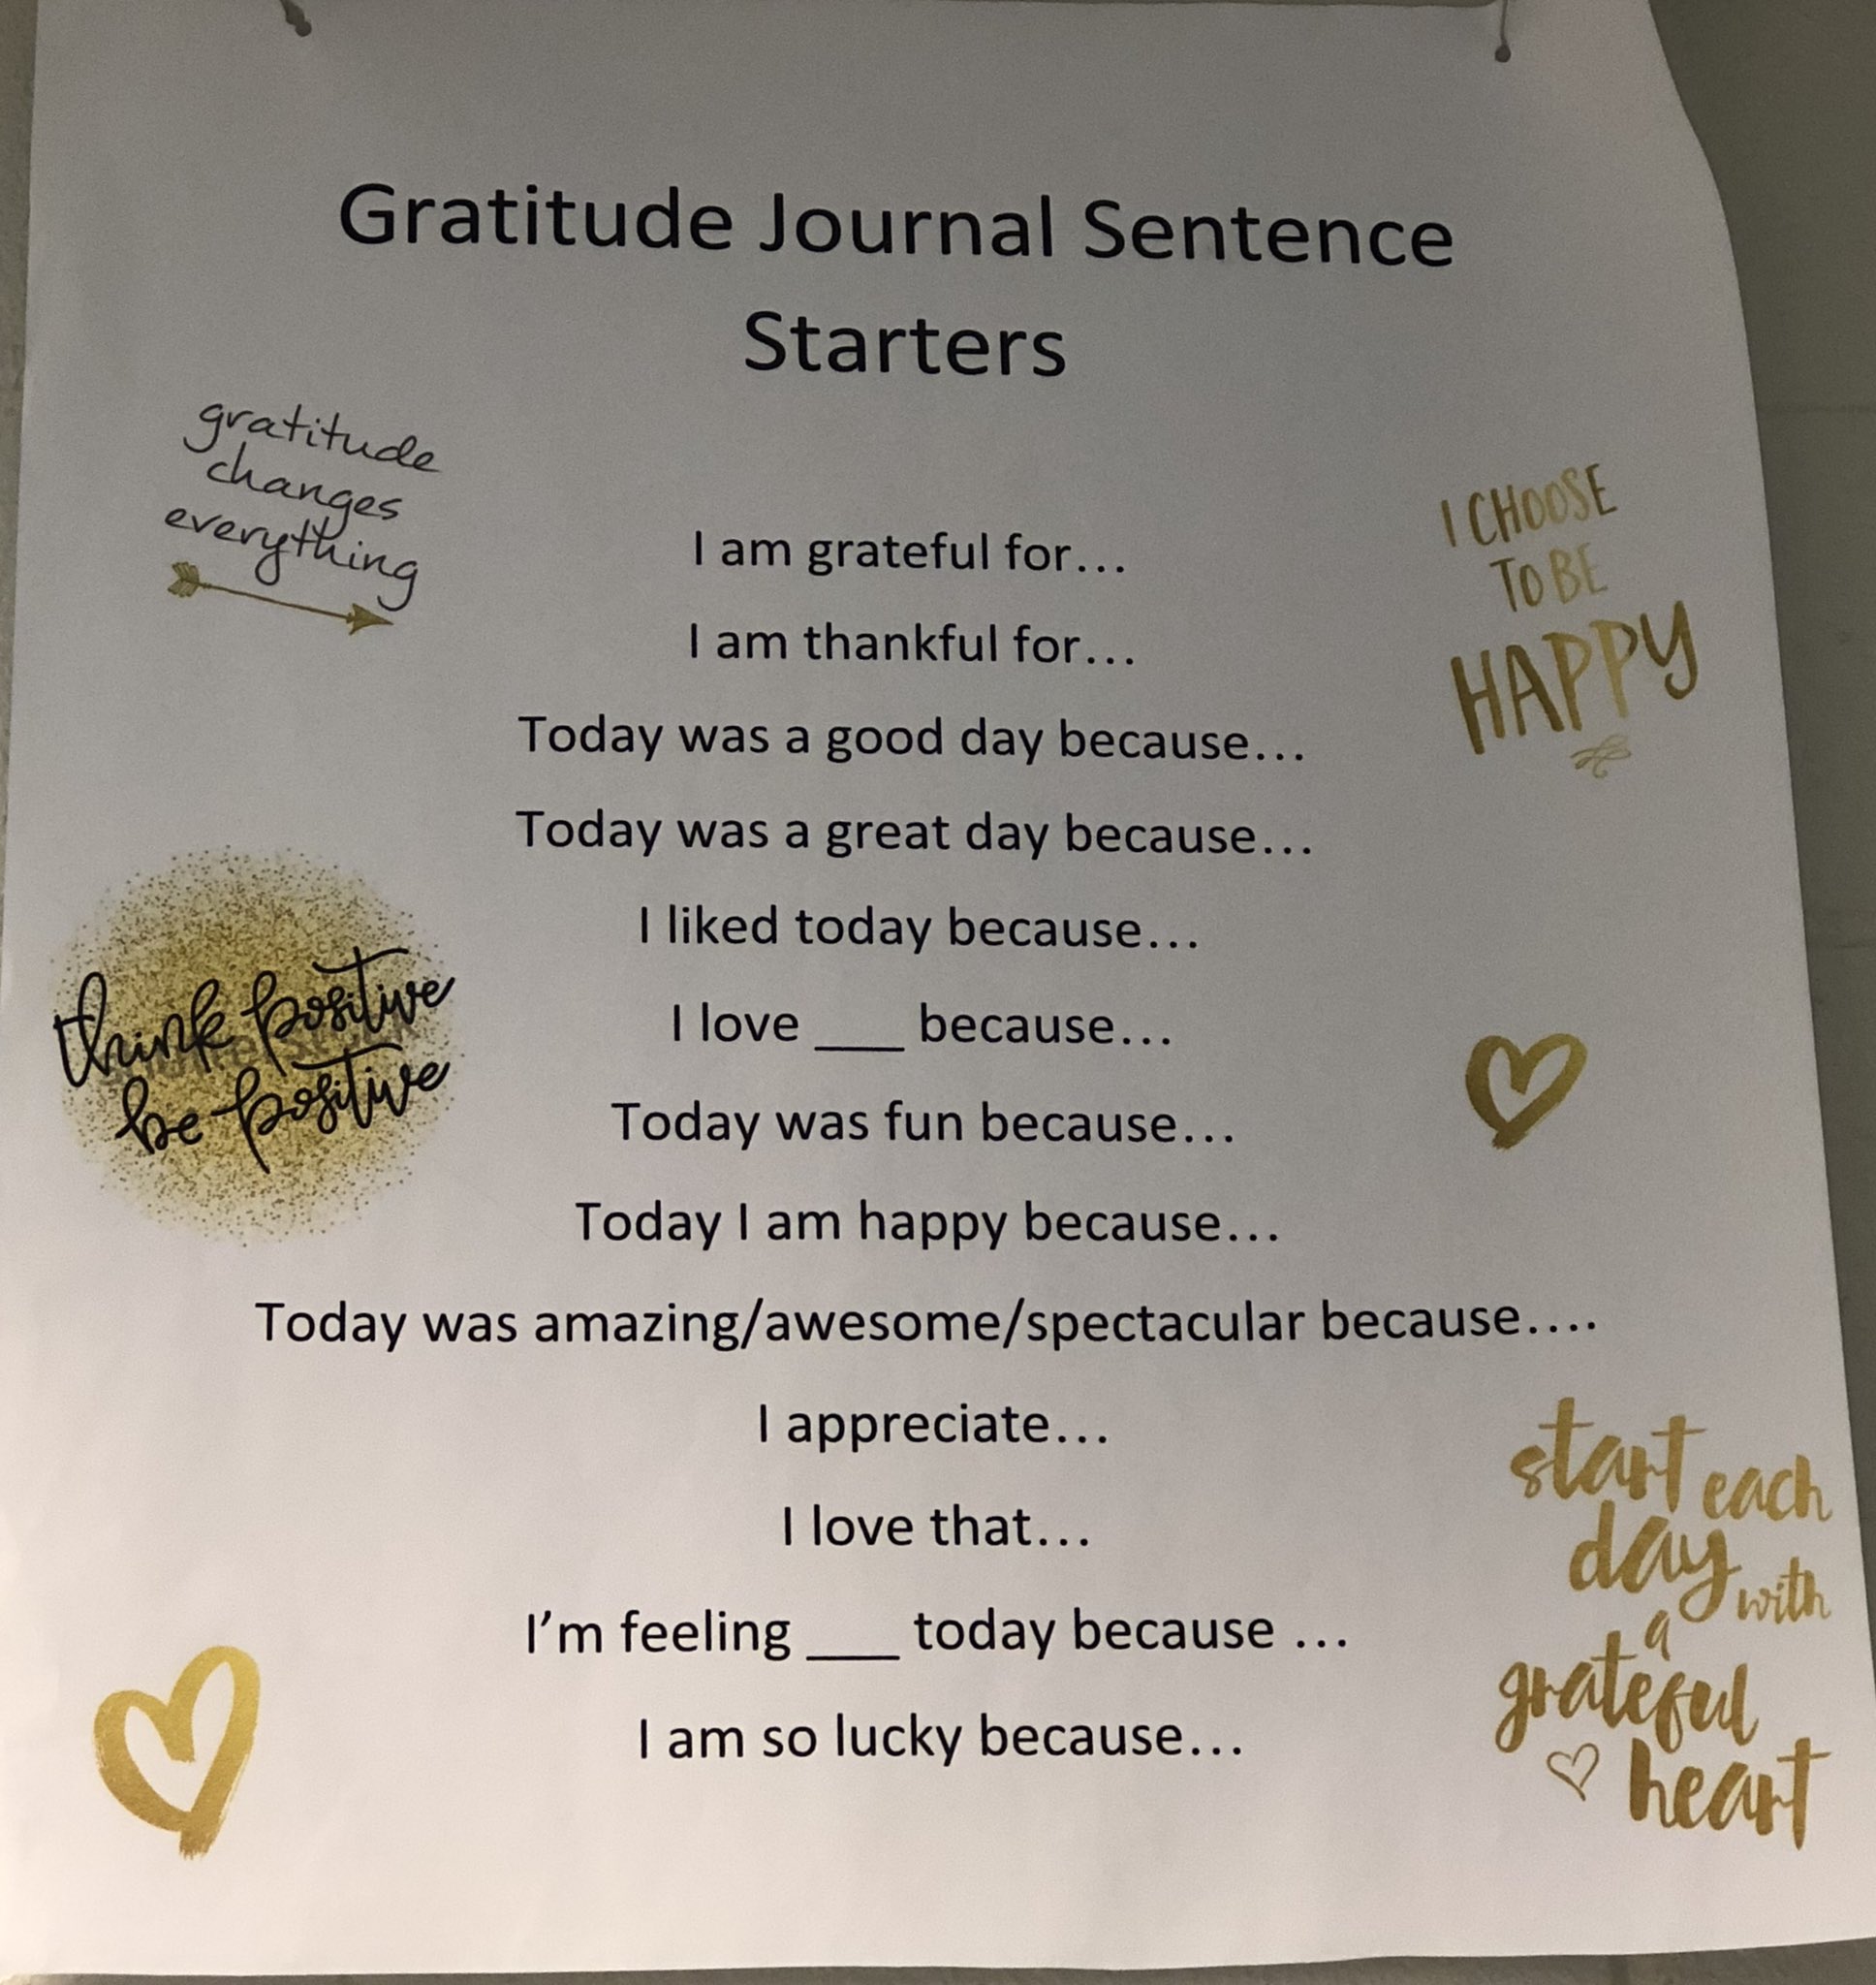 Gratitude Journal Sentence
Starters
gratitude
changes
everything
I CHOOSE
TO BE
HAPPY
I am grateful for...
I am thankful for...
Today was a good day because...
Today was a great day because...
I liked today because...
I love ___ because...
Today was fun because...
Today I am happy because...
Today was amazing/awesome/spectacular because....
I appreciate...
I love that...
I'm feeling ___ today because ...
I am so lucky because...
think positive
be positive
start each
day with
a
grateful
heart